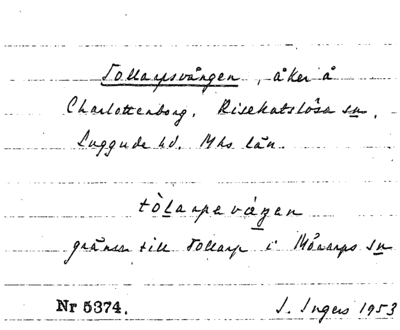 Tollarpsvången, åker å
Charlottenborg, Risekatslösa sn,
Luggude hd. Mhs län.
tòlarpsváŋen
gränsar till Tollarp i Mörarps sn
Nr 5374. I. Ingers 1953